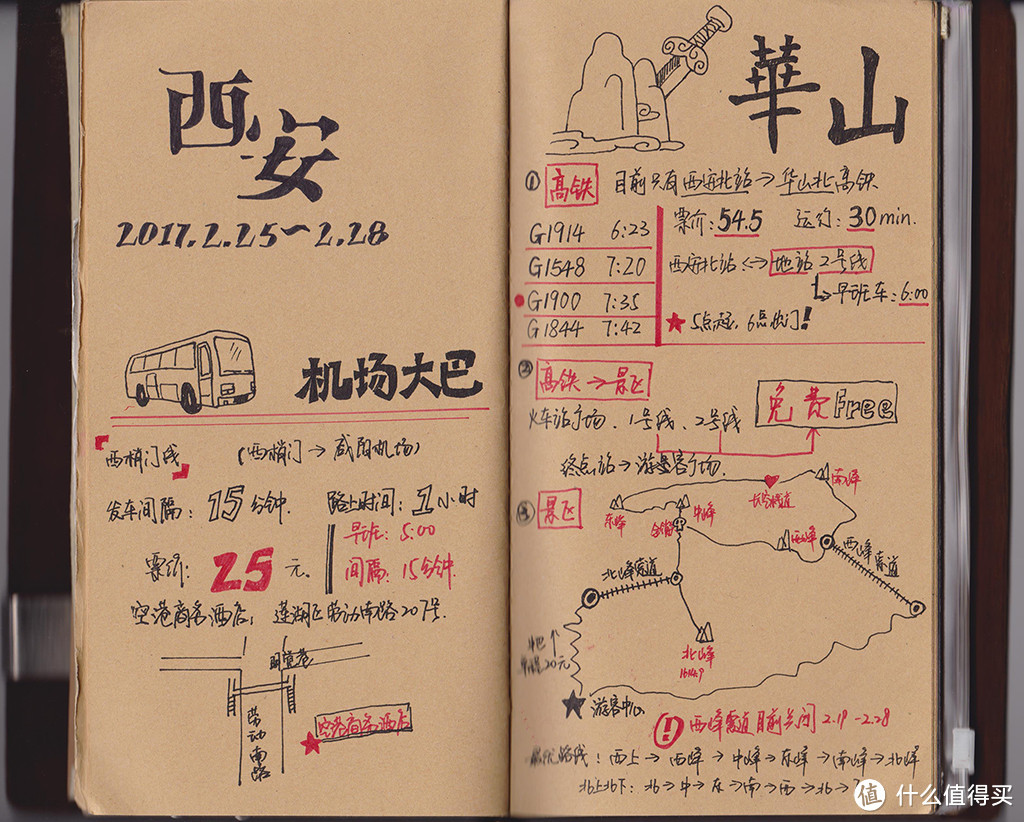 西安
2017.2.25~2.28
机场大巴
西梢门线 (西梢门→咸阳机场)
发车间隔：15分钟. 路上时间：1小时
早班：5:00
票价：25元. 间隔：15分钟
空港商务酒店，莲湖区劳动南路207号.
明堂巷
劳动南路
空港商务酒店
華山
① 高铁 目前只有西安北站→华山北高铁
G1914 6:23
G1548 7:20
G1900 7:35
G1844 7:42
票价：54.5 运行：30min.
西安北站<->地站2号线
早班车：6:00
5点起，6点出门!
② 高铁→景区
火车站广场、1号线、2号线 免费Free
终点站→游客广场.
③ 景区
南峰
长空栈道
东峰
中峰
金锁关
西峰
西峰索道
北峰索道
北峰
1614.9
单程20元
游客中心
! 西峰索道目前关闭 2.19-2.28
最优路线：西上→西峰→中峰→东峰→南峰→北峰
北上北下：北→中→东→南→西→北→
值 什么值得买